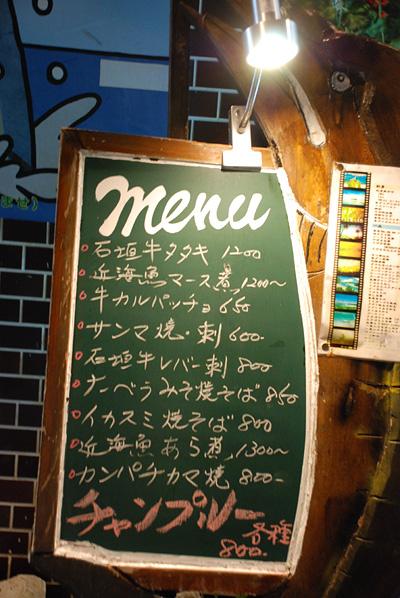 menu
石垣牛タタキ 1200
近海魚マース煮 1200〜
牛カルパッチョ 650
サンマ焼・刺 600.
石垣牛レバー刺 800
ナーベラみそ焼そば 850
イカスミ焼そば 800
近海魚あら煮 1300〜
カンパチカマ焼 800-
チャンプルー
各種
800.